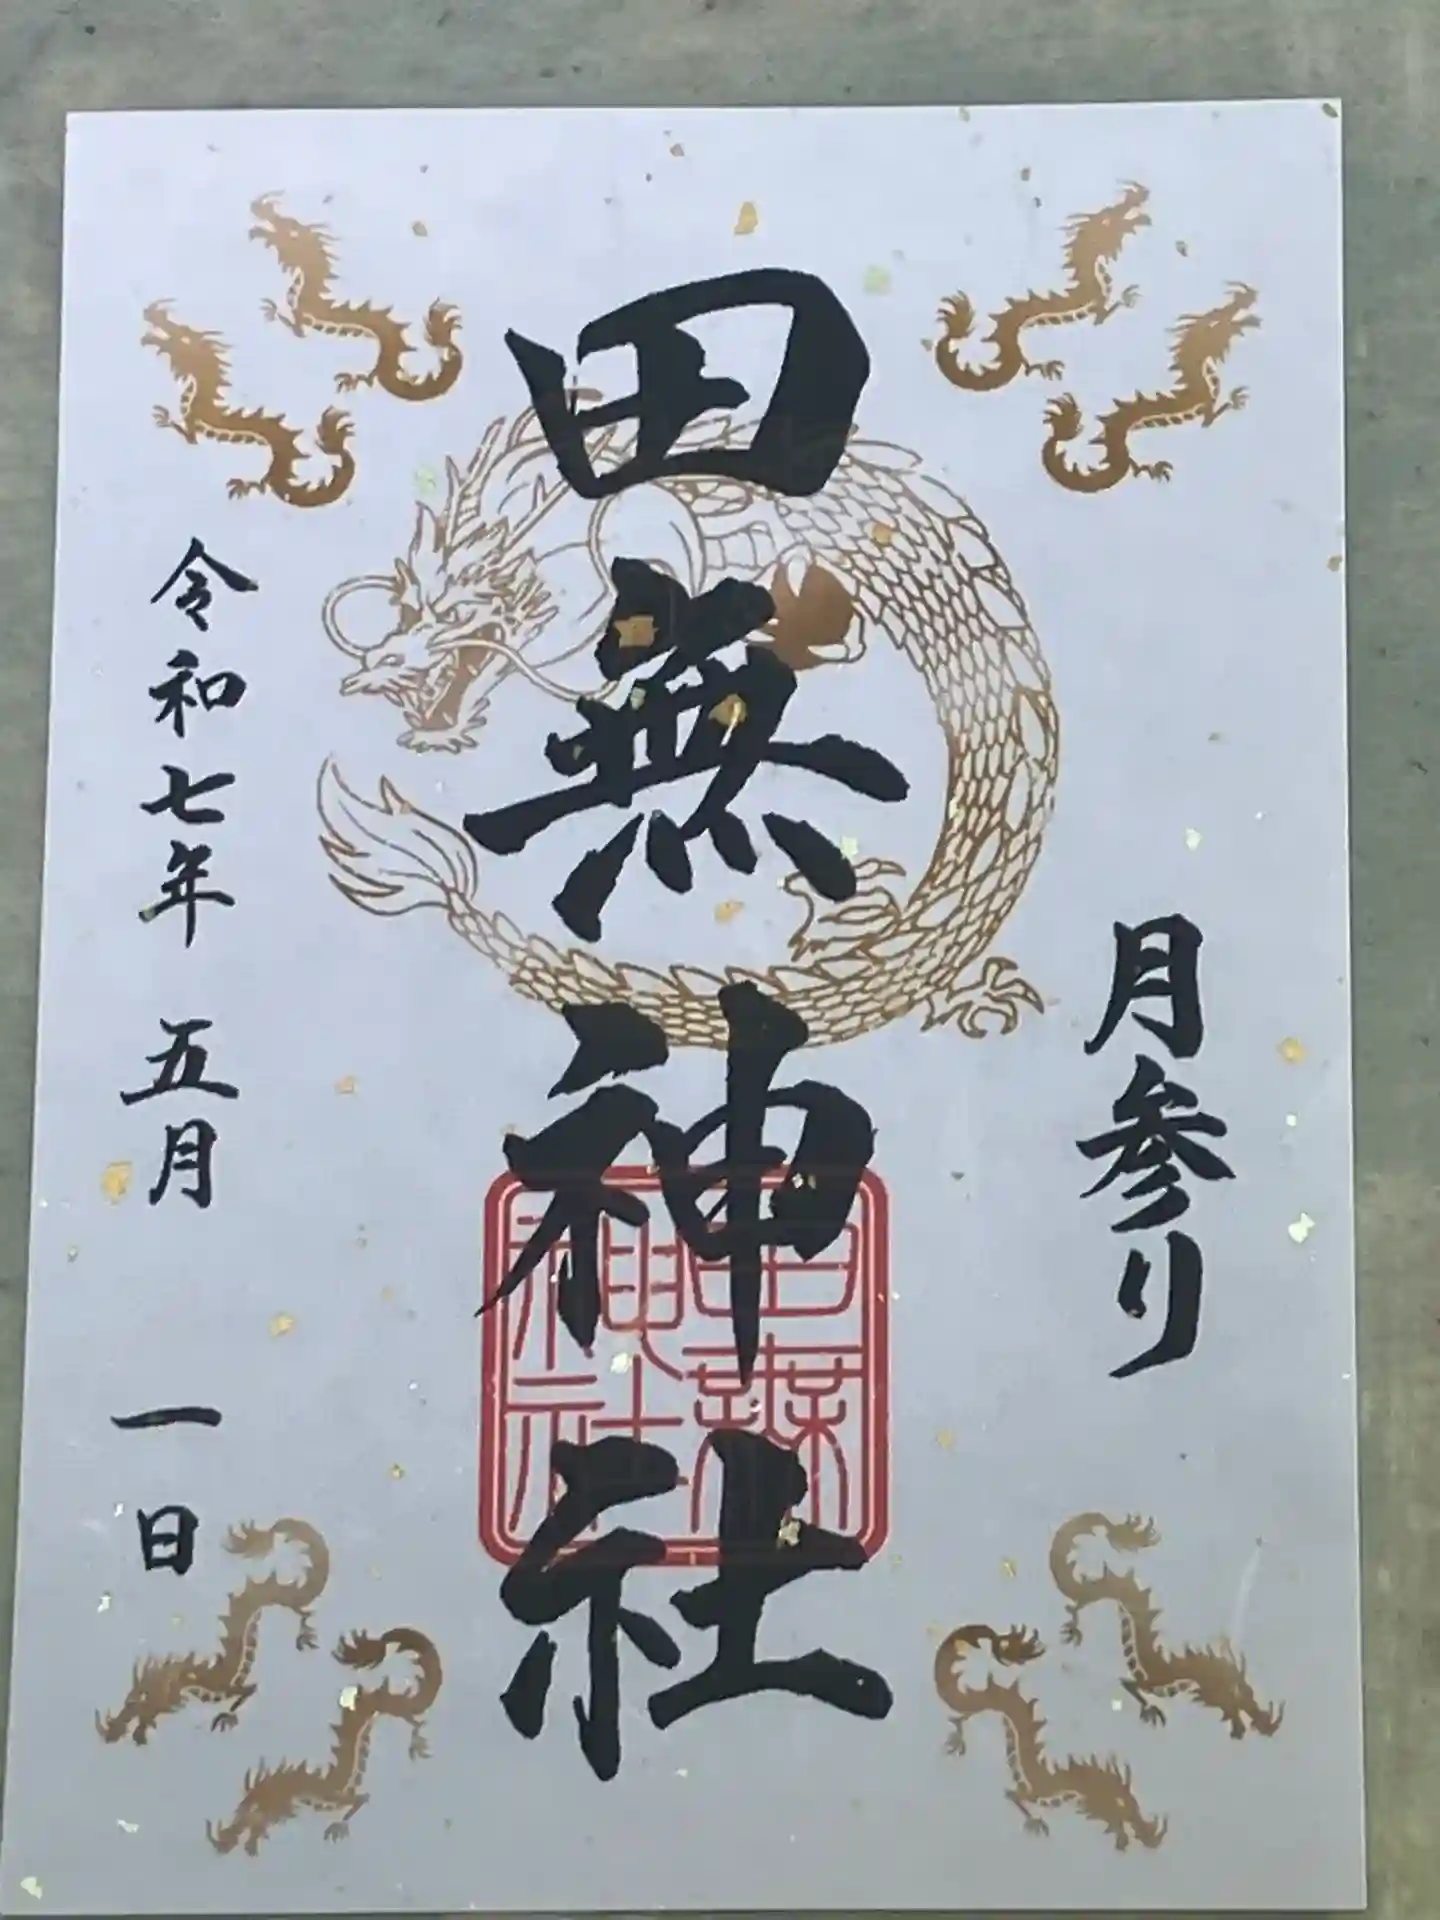 月参り
田無神社
田無神社
令和七年 五月 一日